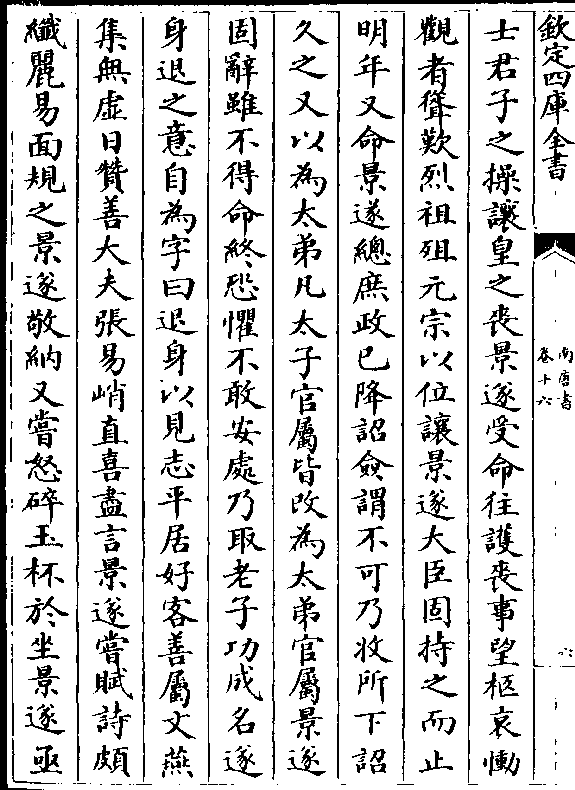 欽定四庫全書
南唐書
卷十六
六
士君子之操讓皇之喪景遂受命往護喪事望柩哀慟
觀者聳歎烈祖殂元宗以位讓景遂大臣固持之而止
明年又命景遂總庶政已降詔僉謂不可乃收所下詔
久之又以為太弟凡太子官屬皆改為太弟官屬景遂
固辭雖不得命終恐懼不敢安處乃取老子功成名遂
身退之意自為字曰退身以見志平居好客善屬文燕
集無虛日贊善大夫張易峭直喜盡言景遂嘗賦詩頗
纖麗易面規之景遂敬納又嘗怒碎玉杯於坐景遂亟